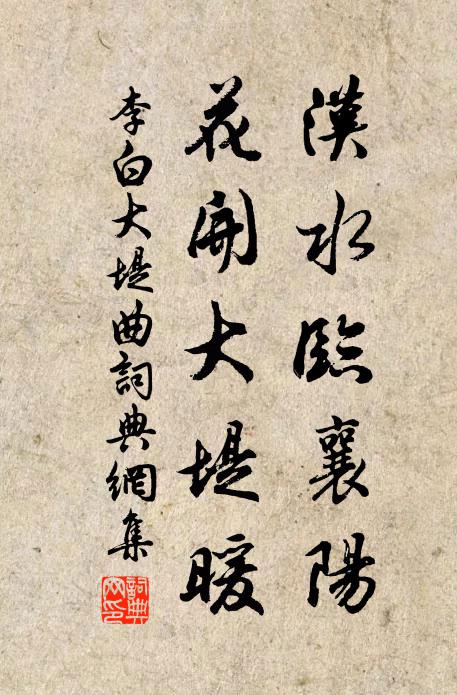 漢水臨襄陽
花開大堤暖
李白大堤曲詞典網集
詞典
网印